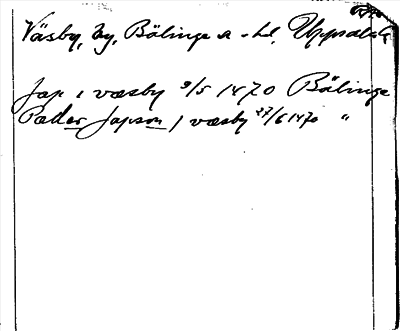 Väsby, by, Bälinge s. o. hd, Uppsala l.
Jap i væsby 9/5 1470 Bälinge
Pæder Japson i væsby 27/6 1470 "